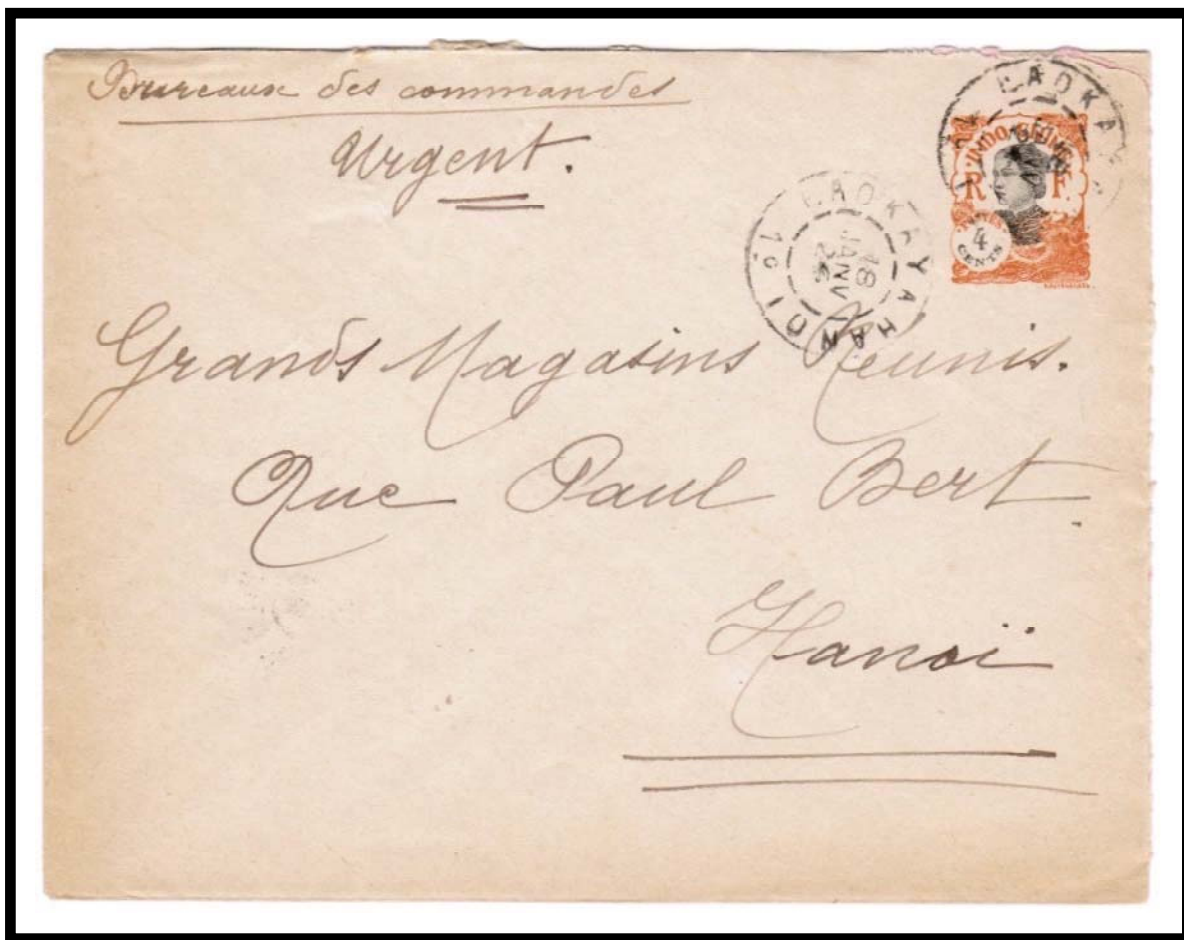 Bureaux des commandes
Urgent.
LAOKAY
INDO-CHINE
R F
4
CENTS
LAOKAY A HANOI
1º
18
JANV
Grands Magasins Réunis.
Rue Paul Bert
Hanoï